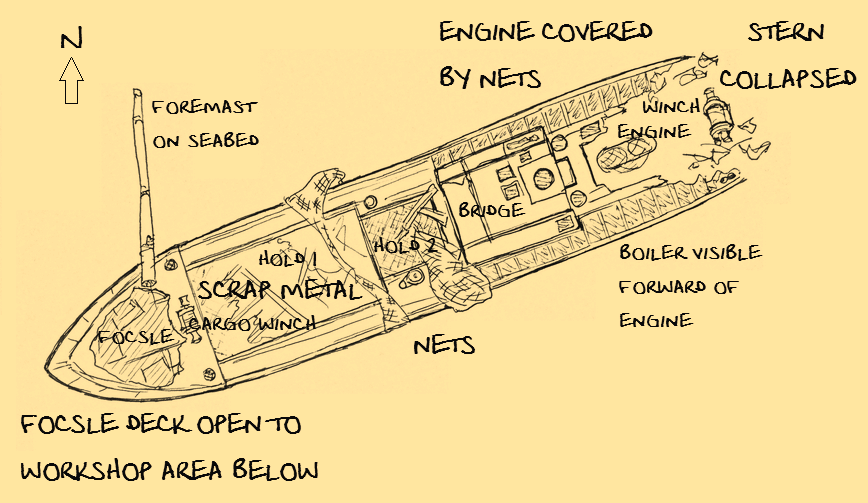 N
ENGINE COVERED
BY NETS
STERN
COLLAPSED
FOREMAST
ON SEABED
WINCH
ENGINE
BRIDGE
HOLD 2
HOLD 1
SCRAP METAL
CARGO WINCH
FOCSLE
NETS
BOILER VISIBLE
FORWARD OF
ENGINE
FOCSLE DECK OPEN TO
WORKSHOP AREA BELOW